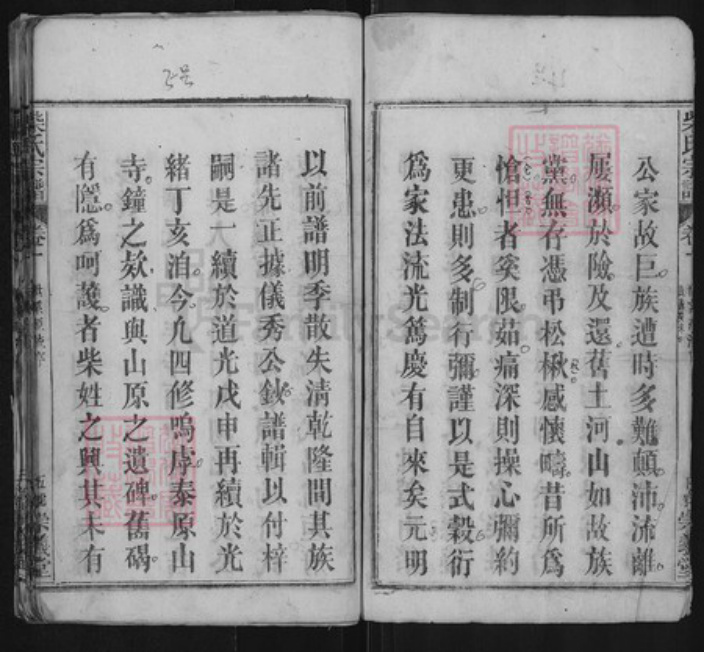 公家故巨族遭時多難顛沛流離
屢瀕於險及還舊土河山如故族
黨無存憑弔松楸感懷疇昔所爲
愴怛者奚限茹痛深則操心彌約
更患則多制行彌謹以是式穀衍
爲家法流光篤慶有自來矣元明
以前譜明季散失清乾隆間其族
諸先正據儀秀公鈔譜輯以付梓
嗣是一續於道光戊申再續於光
緒丁亥洎今凡四修嗚虖泰原山
寺鐘之欵識與山原之遺碑舊碣
有隱爲呵護者柴姓之興其未有
柴氏宗譜
FamilySearch